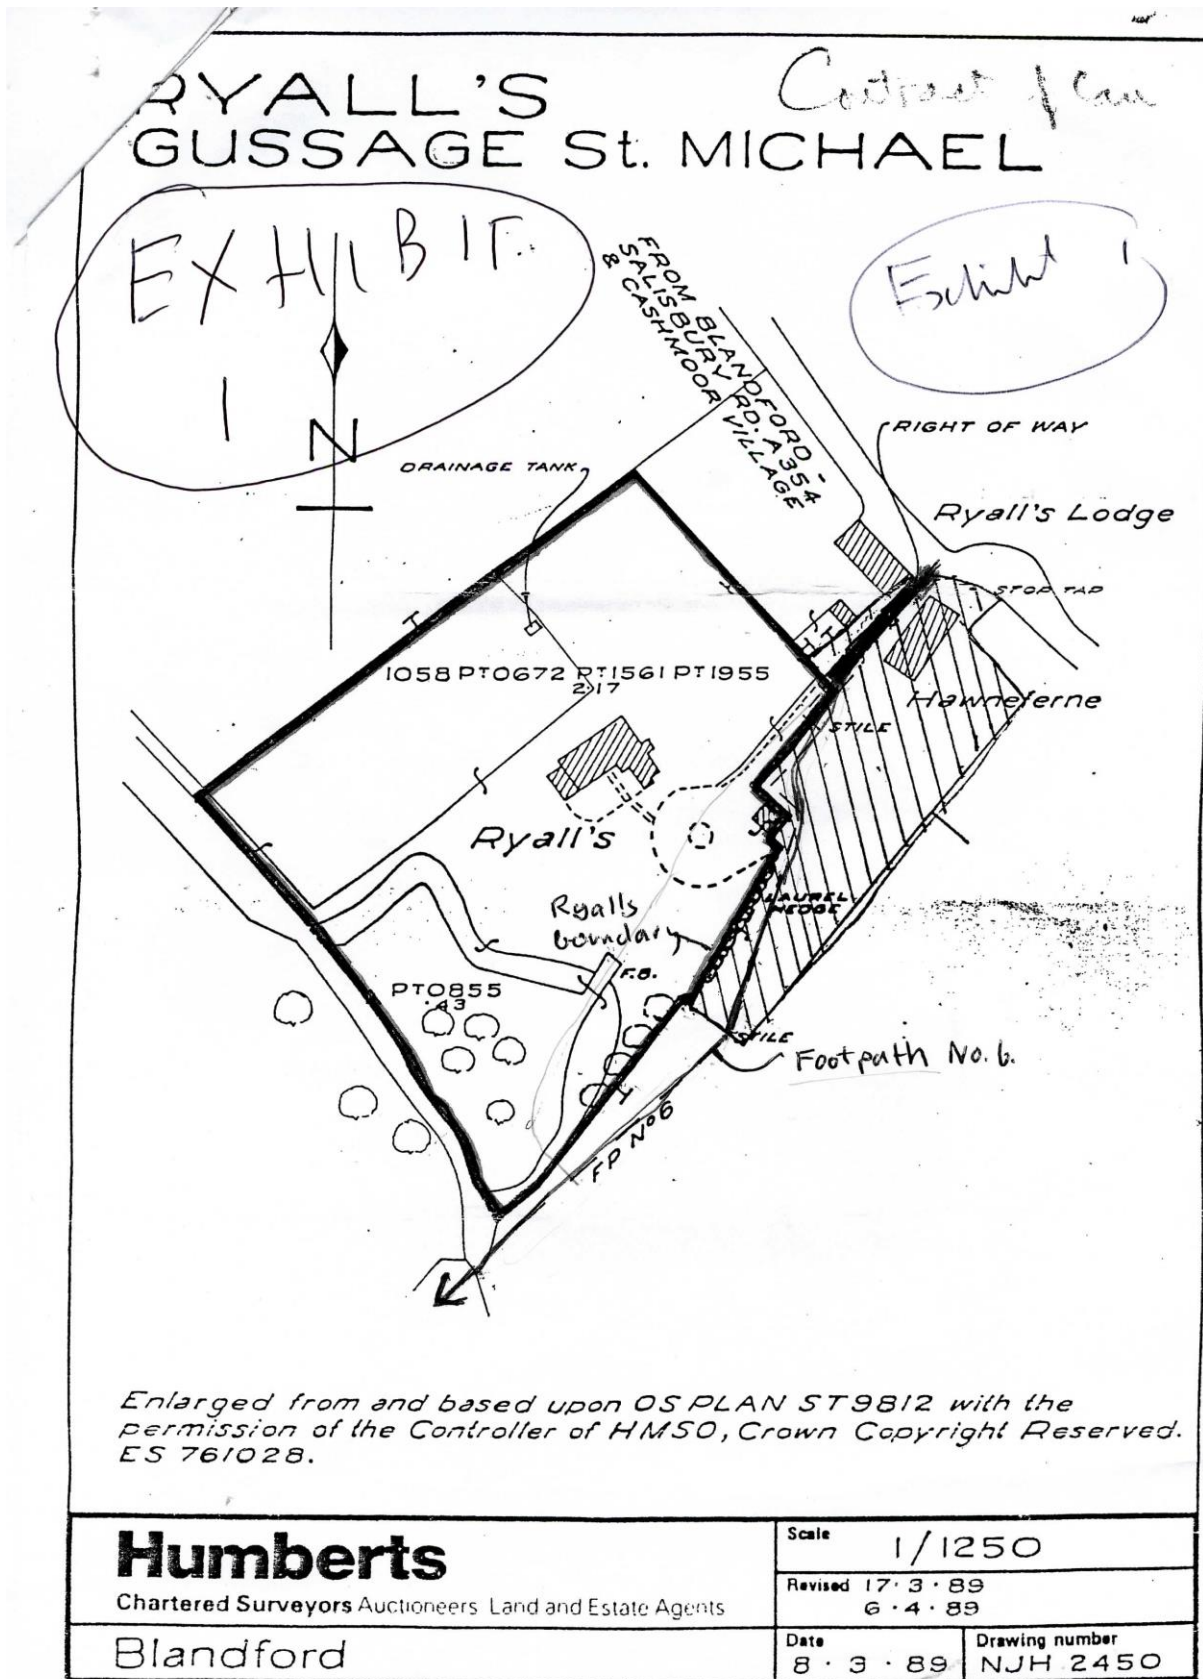 RYALL'S
Contract Plan
GUSSAGE St. MICHAEL
EXHIBIT
1
Exhibit 1
N
FROM BLANDFORD -
SALISBURY RD. A354
& CASHMOOR VILLAGE
RIGHT OF WAY
DRAINAGE TANK
Ryall's Lodge
STOP TAP
1058 PT0672 PT1561 PT1955
2·17
Hawneferne
STILE
Ryall's
LAUREL
HEDGE
Ryalls
boundary
F.B.
PT0855
·43
STILE
Footpath No. 6.
FP No6
Enlarged from and based upon OS PLAN ST9812 with the
permission of the Controller of HMSO, Crown Copyright Reserved.
ES 761028.
Humberts
Chartered Surveyors Auctioneers Land and Estate Agents
Blandford
Scale 1/1250
Revised 17·3·89
6·4·89
Date
8·3·89
Drawing number
NJH 2450